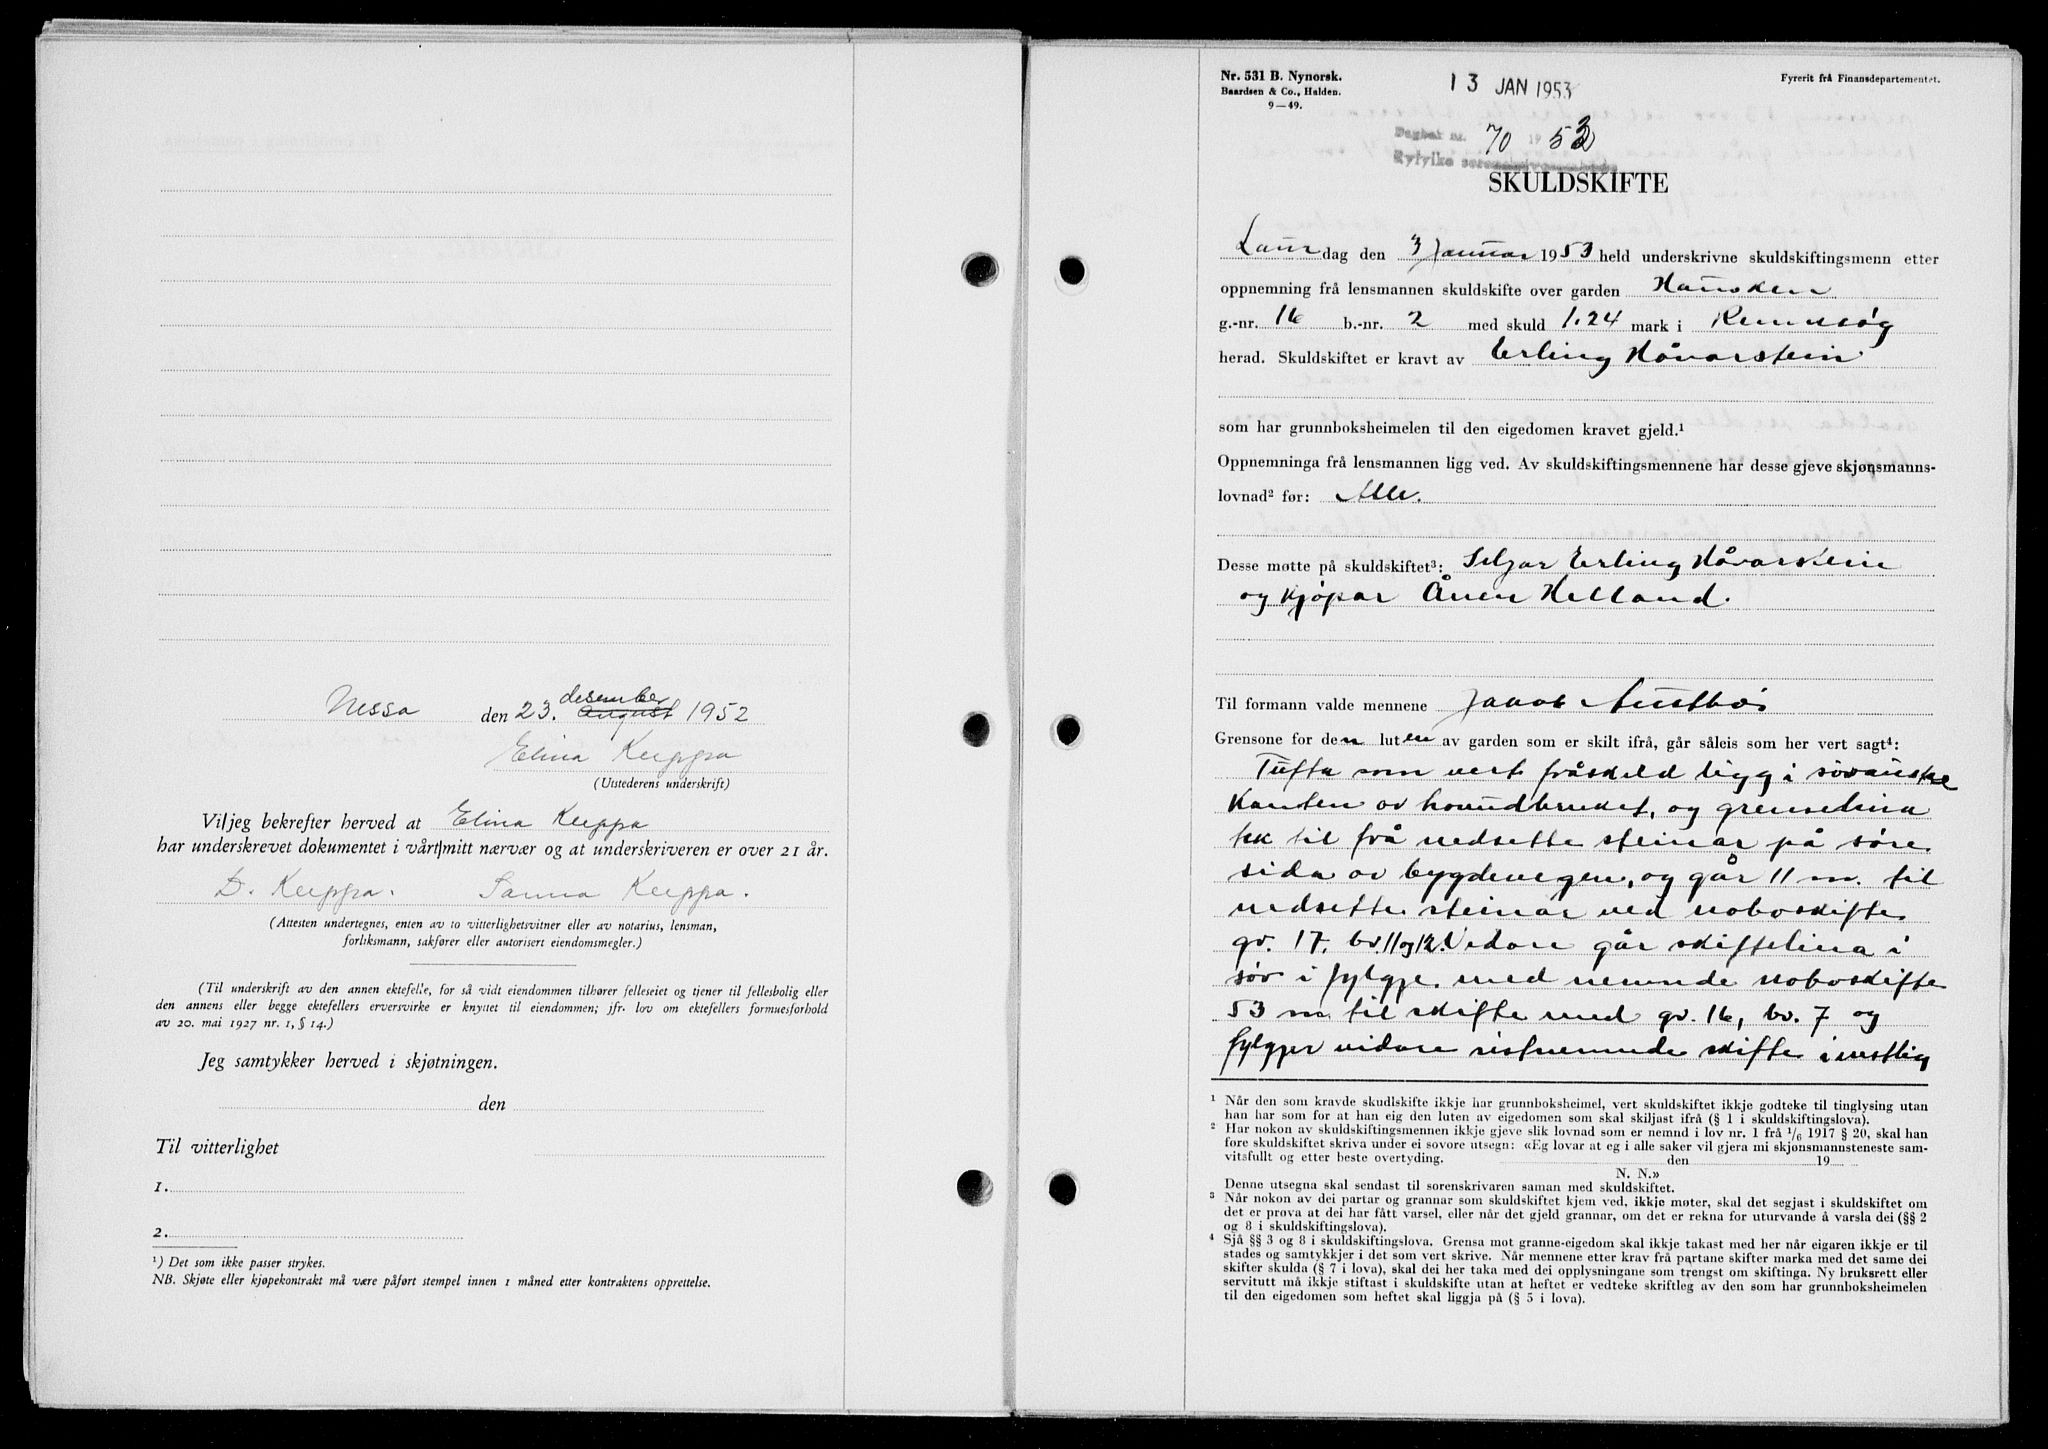 Nessa den 23. desember august 1952
Elina Kuppa
(Utstederens underskrift)
Vi/jeg bekrefter herved at Elina Kuppa
har underskrevet dokumentet i vårt/mitt nærvær og at underskriveren er over 21 år.
D. Kuppa. Sanna Kuppa.
(Attesten undertegnes, enten av to vitterlighetsvitner eller av notarius, lensman,
forliksmann, sakfører eller autorisert eiendomsmegler.)
(Til underskrift av den annen ektefelle, for så vidt eiendommen tilhører felleseiet og tjener til fellesbolig eller
den annens eller begge ektefellers erversvirke er knyttet til eiendommen; jfr. lov om ektefellers formuesforhold
av 20. mai 1927 nr. 1, § 14.)
Jeg samtykker herved i skjøtningen.
den
Til vitterlighet
1.
2.
¹) Det som ikke passer strykes.
NB. Skjøte eller kjøpekontrakt må være påført stempel innen 1 måned etter kontraktens opprettelse.
Nr. 531 B. Nynorsk.
Baardsen & Co., Halden.
9—49.
13 JAN 1953
Fyrerit frå Finansdepartementet.
Dagbok nr. 70 19 53
Ryfylke
SKULDSKIFTE
Laurdag den 3 Januar 1953 held underskrivne skuldskiftingsmenn etter
oppnemning frå lensmannen skuldskifte over garden Hausken
g.-nr. 16 b.-nr. 2 med skuld 1.24 mark i Rennesøy
herad. Skuldskiftet er kravt av Erling Håvarstein
som har grunnboksheimelen til den eigedomen kravet gjeld.¹
Oppnemninga frå lensmannen ligg ved. Av skuldskiftingsmennene har desse gjeve skjønsmanns-
lovnad² før: Alle.
Desse møtte på skuldskiftet³: Seljar Erling Håvarstein
og Kjøpar Ånen Helland.
Til formann valde mennene Jakob Austbø
Grensone for den luten av garden som er skilt ifrå, går såleis som her vert sagt⁴:
Tufta som vert fråskild ligg i søraustre
Kanten av hovudbruket, og grenselina
tek til frå nedsette steinar på søre
sida av bygdevegen, og går 11 m. til
nedsette steinar ved naboskifte
gr. 17, br. 11 og 12. Vidare går skiftelina i
sør i fylgje med nemnde naboskifte
53 m. til skifte med gr. 16, br. 7 og
fylgjer vidare sistnemnde skifte i vestlig
¹ Når den som kravde skudlskifte ikkje har grunnboksheimel, vert skuldskiftet ikkje godteke til tinglysing utan
han har som for at han eig den luten av eigedomen som skal skiljast ifrå (§ 1 i skuldskiftingslova).
² Har nokon av skuldskiftingsmennen ikkje gjeve slik lovnad som er nemnd i lov nr. 1 frå 1/6 1917 § 20, skal han
føre skuldskiftet skriva under ei sovore utsegn: «Eg lovar at eg i alle saker vil gjera mi skjønsmannsteneste sam-
vitsfullt og etter beste overtyding. den 19
N. N.»
Denne utsegna skal sendast til sorenskrivaren saman med skuldskiftet.
³ Når nokon av dei partar og grannar som skuldskiftet kjem ved, ikkje møter, skal det segjast i skuldskiftet om
det er prova at dei har fått varsel, eller når det gjeld grannar, om det er rekna for uturvande å varsla dei (§§ 2
og 8 i skuldskiftingslova).
⁴ Sjå §§ 3 og 8 i skuldskiftingslova. Grensa mot granne-eigedom skal ikkje takast med her når eigaren ikkje er til
stades og samtykkjer i det som vert skrive. Når mennene etter krav frå partane skifter marka med det same dei
skifter skulda (§ 7 i lova), skal dei her taka med dei opplysningane som trengst om skiftinga. Ny bruksrett eller
servitutt må ikkje stiftast i skuldskifte utan at heftet er vedteke skriftleg av den som har grunnboksheimelen
til den eigedomen som heftet skal liggja på (§ 5 i lova).